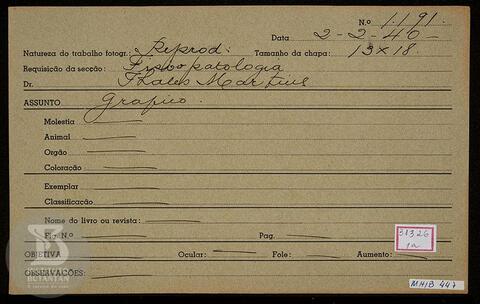 N.º 1.191.
Data 2-2-40-
Natureza do trabalho fotogr.: Reprod. Tamanho da chapa: 13 x 18.
Requisição da secção: Fisiopatologia
Dr. Thales Martins
ASSUNTO Grafico.
Molestia
Animal
Orgão
Coloração
Exemplar
Classificação
Nome do livro ou revista:
Fig. N.º Pag.
OBJETIVA Ocular: Fole: Aumento:
OBSERVAÇÕES:
31326
1a
MHIB 447
BUTANTAN